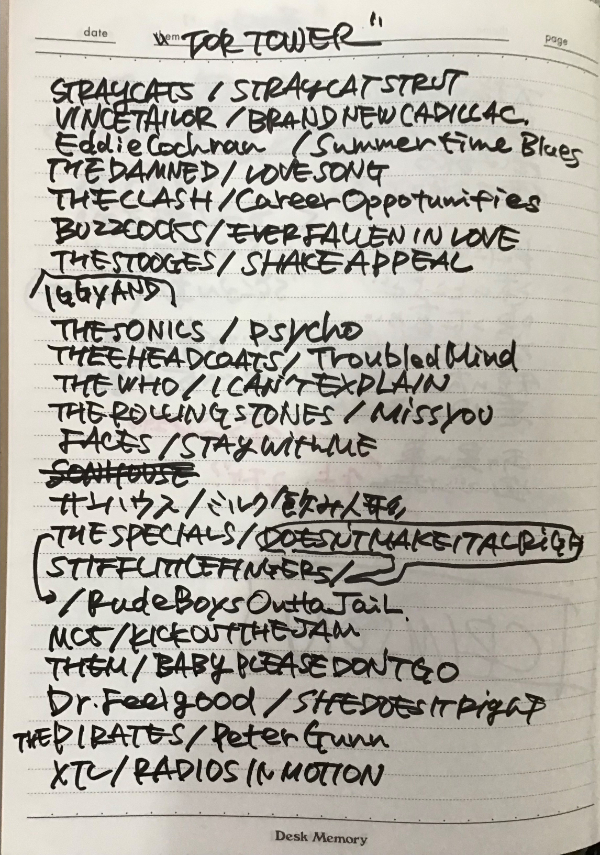 date
TOR TOWER"
page
STRAYCATS / STRAYCATSTRUT
VINCETAILOR / BRAND NEW CADILLAC.
Eddie Cochran / Summertime Blues
THE DAMNED / LOVE SONG
THE CLASH / Career Oppotunities
BUZZCOCKS / EVER FALLEN IN LOVE
THE STOOGES / SHAKE APPEAL
IGGY AND
THE SONICS / Psycho
THEE HEADCOATS / Troubled Mind
THE WHO / I CAN'T EXPLAIN
THE ROLLING STONES / Miss you
FACES / STAY With ME
SONHOUSE
サンハウス / ミルク飲み人形
THE SPECIALS / DOESN'T MAKE IT ALRiGH
STIFF LITTLE FINGERS /
/ Rude Boys Outta JaiL.
MC5 / KICK OUT THE JAM
THEM / BABY PLEASE DON'T GO
Dr. Feelgood / SHE DOES IT Right
THE PIRATES / Peter Gunn
XTC / RADIOS IN MOTION
Desk Memory